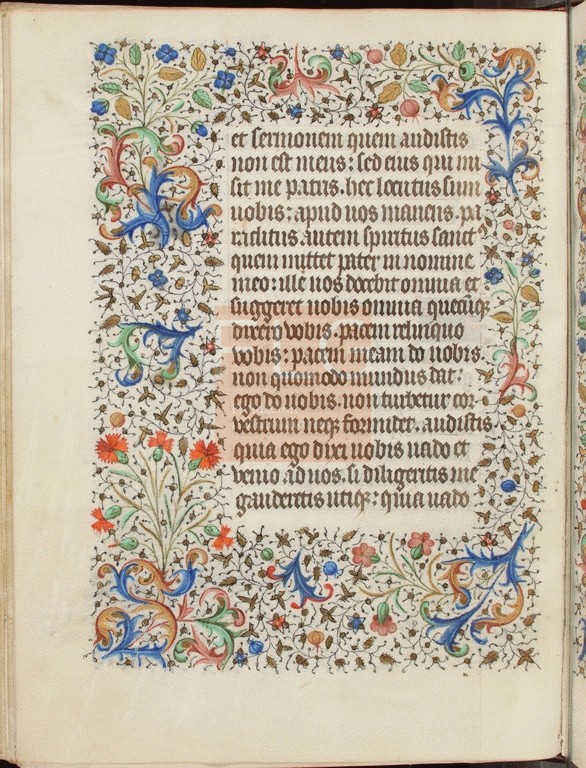 et sermonem quem audistis
non est meus: sed eius qui mi
sit me patris. hec locutus sum
uobis: apud uos manens. pa
raclitus autem spiritus sanct9
quem mittet pater in nomine
meo: ille uos docebit omnia et
suggeret uobis omnia quecūqꝫ
dixero vobis. pacem relinquo
vobis: pacem meam do uobis.
non quomodo mundus dat:
ego do uobis. non turbetur cor
vestrum neqꝫ formidet. audistis
quia ego dixi uobis uado et
venio ad uos. si diligeritis me
gauderetis utiqꝫ: quia uado